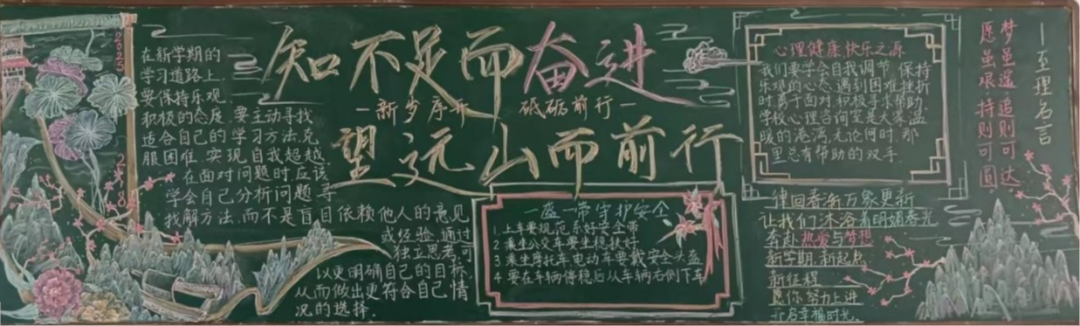 2025
2月18日
在新学期的
学习道路上,
要保持乐观、
积极的态度.要主动寻找
适合自己的学习方法,克
服困难.实现自我超越.
在面对问题时应该
学会自己分析问题寻
找解决方法,而不是盲目依赖他人的意见
或经验.通过
独立思考,可
以更明确自己的目标,
从而做出更符合自己情
况的选择.
知不足而奋进
—新岁序开 砥砺前行—
望远山而前行
一盔一带守护安全
1.上车要规范系好安全带
2.乘坐公交车要坐稳扶好
3.乘坐摩托车电动车要戴安全头盔
4.要在车辆停稳后从车辆右侧下车
心理健康快乐之源
我们要学会自我调节,保持
乐观的心态,遇到困难挫折
时勇于面对,积极寻求帮助.
学校心理咨询室是大家温
暖的港湾,无论何时,那
里总有帮助的双手.
律回春渐万象更新
让我们沐浴着明媚春光
奔赴热爱与梦想
新学期,新起点
新征程
愿你努力上进
开启幸福时光.
—至理名言
梦虽遥追则可达
愿虽艰持则可圆